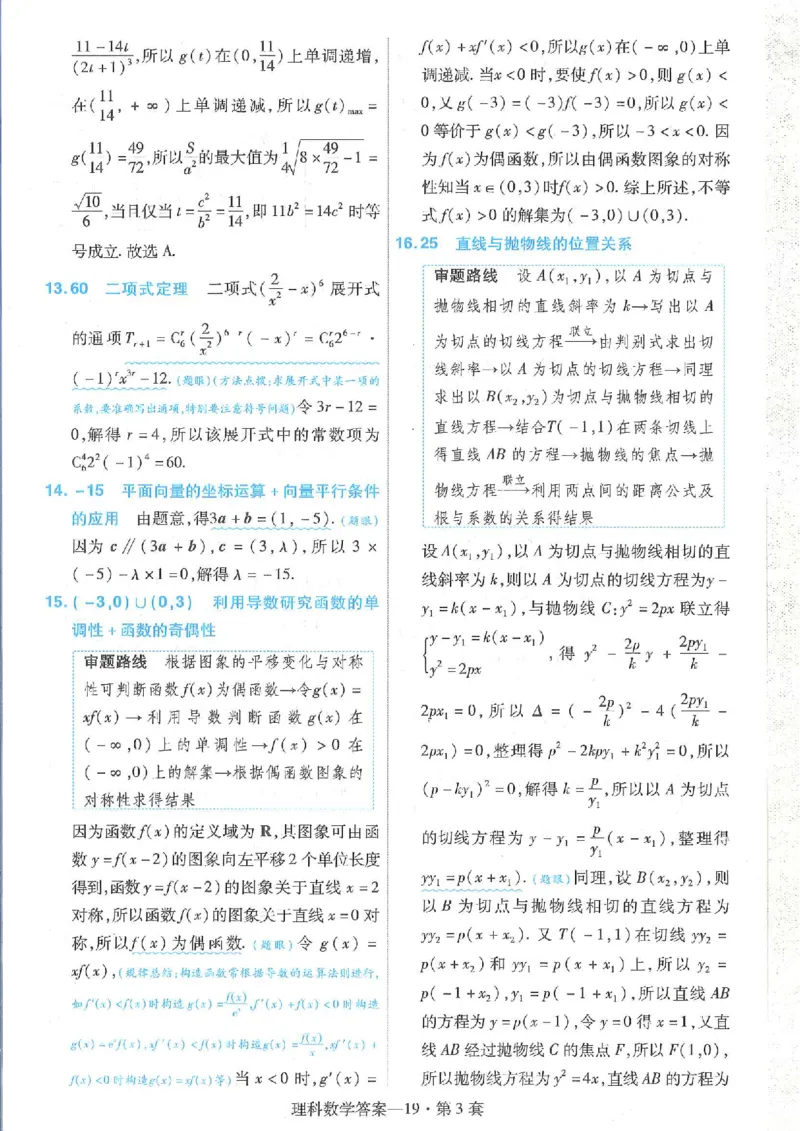 11-14t/(2t+1)³,所以 g(t)在(0,11/14)上单调递增,
在(11/14,+∞)上单调递减,所以g(t)max=
g(11/14)=49/72,所以S/a²的最大值为1/4√(8×49/72-1)=
√10/6,当且仅当t=c²/b²=11/14,即11b²=14c²时等
号成立.故选A.
13.60 二项式定理 二项式(2/x²-x)⁶展开式
的通项Tr+1=C₆ʳ(2/x²)⁶⁻ʳ(-x)ʳ=C₆ʳ2⁶⁻ʳ·
(-1)ʳx³ʳ-12.(题眼)(方法点拨:求展开式中某一项的
系数,要准确写出通项,特别要注意符号问题)令3r-12=
0,解得r=4,所以该展开式中的常数项为
C₆⁴2²(-1)⁴=60.
14.-15 平面向量的坐标运算+向量平行条件
的应用 由题意,得3a+b=(1,-5).(题眼)
因为c∥(3a+b),c=(3,λ),所以3×
(-5)-λ×1=0,解得λ=-15.
15.(-3,0)∪(0,3) 利用导数研究函数的单
调性+函数的奇偶性
审题路线 根据图象的平移变化与对称
性可判断函数f(x)为偶函数→令g(x)=
xf(x)→利用导数判断函数g(x)在
(-∞,0)上的单调性→f(x)>0在
(-∞,0)上的解集→根据偶函数图象的
对称性求得结果
因为函数f(x)的定义域为R,其图象可由函
数y=f(x-2)的图象向左平移2个单位长度
得到,函数y=f(x-2)的图象关于直线x=2
对称,所以函数f(x)的图象关于直线x=0对
称,所以f(x)为偶函数.(题眼)令g(x)=
xf(x),(规律总结:构造函数常根据导数的运算法则进行,
如f′(x)<f(x)时构造g(x)=f(x)/eˣ,f′(x)+f(x)<0时构造
g(x)=eˣf(x),xf′(x)<f(x)时构造g(x)=f(x)/x,xf′(x)+
f(x)<0时构造g(x)=xf(x)等)当x<0时,g′(x)=
f(x)+xf′(x)<0,所以g(x)在(-∞,0)上单
调递减.当x<0时,要使f(x)>0,则g(x)<
0,又g(-3)=(-3)f(-3)=0,所以g(x)<
0等价于g(x)<g(-3),所以-3<x<0.因
为f(x)为偶函数,所以由偶函数图象的对称
性知当x∈(0,3)时f(x)>0.综上所述,不等
式f(x)>0的解集为(-3,0)∪(0,3).
16.25 直线与抛物线的位置关系
审题路线 设A(x₁,y₁),以A为切点与
抛物线相切的直线斜率为k→写出以A
为切点的切线方程—联立→由判别式求出切
线斜率→以A为切点的切线方程→同理
求出以B(x₂,y₂)为切点与抛物线相切的
直线方程→结合T(-1,1)在两条切线上
得直线AB的方程→抛物线的焦点→抛
物线方程—联立→利用两点间的距离公式及
根与系数的关系得结果
设A(x₁,y₁),以A为切点与抛物线相切的直
线斜率为k,则以A为切点的切线方程为y-
y₁=k(x-x₁),与抛物线C:y²=2px联立得
{y-y₁=k(x-x₁)
y²=2px
,得y²-2p/k y+2py₁/k-
2px₁=0,所以Δ=(-2p/k)²-4(2py₁/k-
2px₁)=0,整理得p²-2kpy₁+k²y₁²=0,所以
(p-ky₁)²=0,解得k=p/y₁,所以以A为切点
的切线方程为y-y₁=p/y₁(x-x₁),整理得
yy₁=p(x+x₁).(题眼)同理,设B(x₂,y₂),则
以B为切点与抛物线相切的直线方程为
yy₂=p(x+x₂).又T(-1,1)在切线yy₂=
p(x+x₂)和yy₁=p(x+x₁)上,所以y₂=
p(-1+x₂),y₁=p(-1+x₁),所以直线AB
的方程为y=p(x-1),令y=0得x=1,又直
线AB经过抛物线C的焦点F,所以F(1,0),
所以抛物线方程为y²=4x,直线AB的方程为
理科数学答案—19·第3套